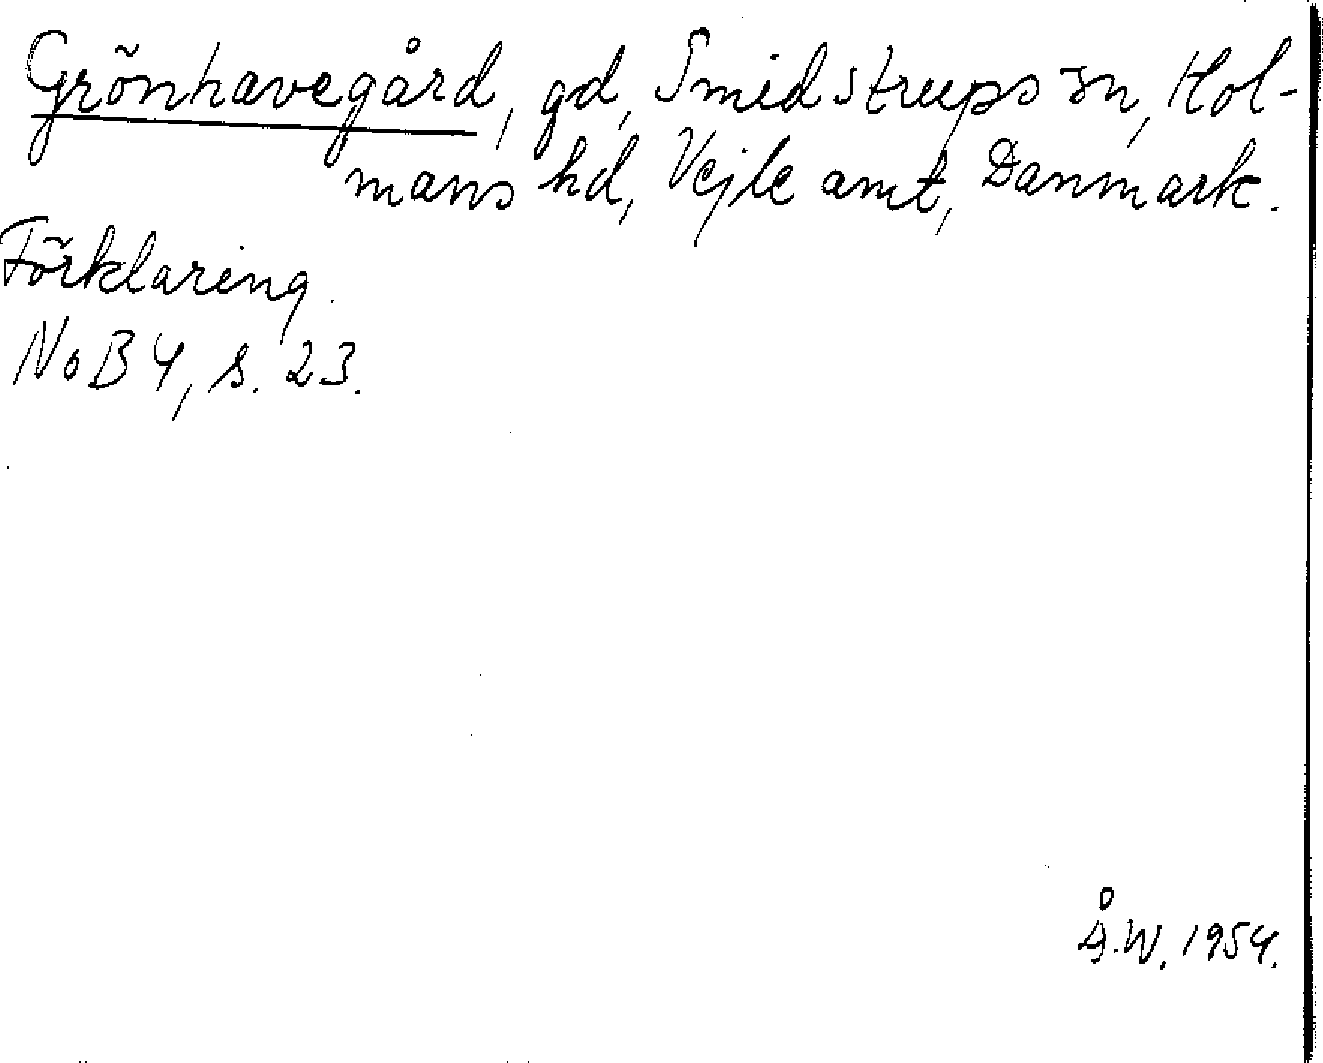 Grönhavegård, gd, Smidstrups sn, Hol-
mans hd, Vejle amt, Danmark.
Förklaring.
NoB 4, s. 23.
Å.W. 1954.